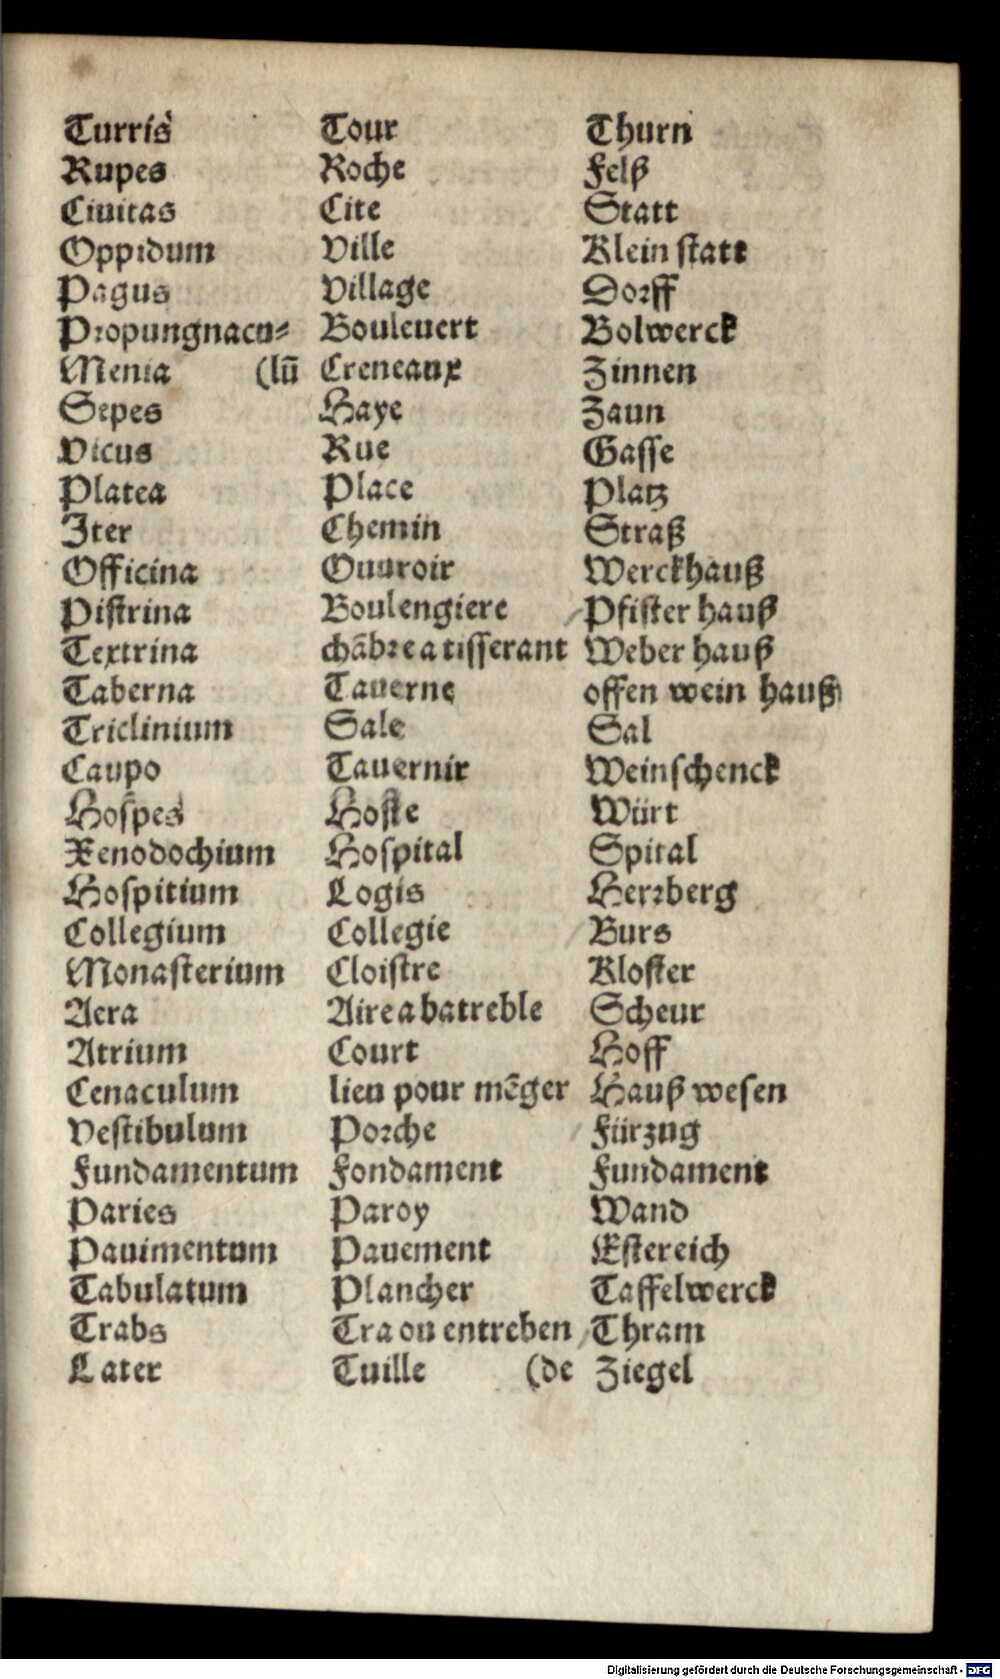 Turris Tour Thurn
Rupes Roche Felß
Ciuitas Cite Statt
Oppidum Ville Klein statt
Pagus Village Dorff
Propungnacu= Bouleuert Bolwerck
Menia (lū Creneaux Zinnen
Sepes Haye Zaun
Vicus Rue Gasse
Platea Place Platz
Iter Chemin Straß
Officina Ouuroir Werckhauß
Pistrina Boulengiere Pfister hauß
Textrina chābre a tisserant Weber hauß
Taberna Tauerne offen wein hauß
Triclinium Sale Sal
Caupo Tauernir Weinschenck
Hospes Hoste Würt
Xenodochium Hospital Spital
Hospitium Logis Herrberg
Collegium Collegie Burs
Monasterium Cloistre Kloster
Aera Aire a batreble Scheur
Atrium Court Hoff
Cenaculum lieu pour mēger Hauß wesen
Vestibulum Porche Fürzug
Fundamentum Fondament Fundament
Paries Paroy Wand
Pauimentum Pauement Estereich
Tabulatum Plancher Taffelwerck
Trabs Tra ou entreben Thram
Later Tuille (de Ziegel
Digitalisierung gefördert durch die Deutsche Forschungsgemeinschaft - DFG